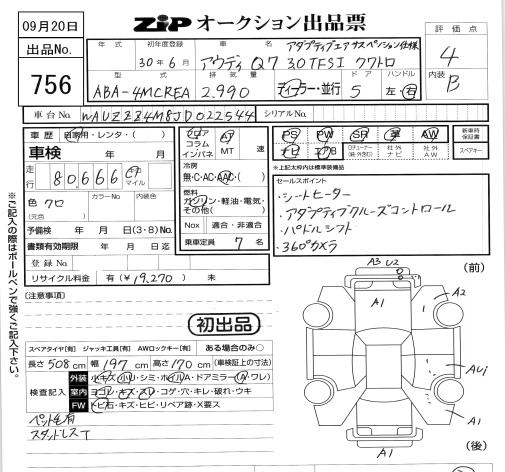 09月20日
ZIP オークション出品票
出品No.
756
年式 初年度登録 車名 アダプティブエアサスペンション仕様
30年6月 アウディ Q7 30TFSI クワトロ
型式 排気量 ドア ハンドル
ABA-4MCREA 2.990 ディーラー・並行 5 左・右
評価点
4
内装
B
車台No. WAUZZZ4M8JD022544 シリアルNo.
車歴 自家用・レンタ・( )
車検 年 月
走行 80,666 km マイル
色 クロ (元色) カラーNo. 内装色
予備検 年 月 日(3・8)No.
書類有効期限 年 月 日迄
登録No.
リサイクル料金 有(¥19,270) 未
フロア コラム インパネ AT MT 速
冷房
無・C・AC・AAC・( )
燃料
ガソリン・軽油・電気・その他( )
Nox 適合・非適合
乗車定員 7 名
PS PW SR 革 AW
ナビ エアB TVチューナー(純・外含む) 社外ナビ 社外AW
新車時保証書
スペアキー
★上記太枠内は標準装備品
セールスポイント
・シートヒーター
・アダプティブクルーズコントロール
・パドルシフト
・360°カメラ
※ご記入の際はボールペンで強くご記入下さい。
[注意事項]
初出品
スペアタイヤ[有] ジャッキ工具[有] AWロックキー[有] ある場合のみ○
長さ 508 cm 幅 197 cm 高さ 170 cm (車検証上の寸法)
検査記入
外装 小キズ・小U・シミ・ホイルA・ドアミラー(A・ワレ)
室内 ヨゴレ・キズ・スレ・コゲ・穴・キレ・破れ・ウキ
FW トビ石・キズ・ヒビ・リペア跡・X要ス
ペット毛有
スタッドレスT
A3 U2
(前)
A1
A2
A1
AUi
A1
A1
(後)